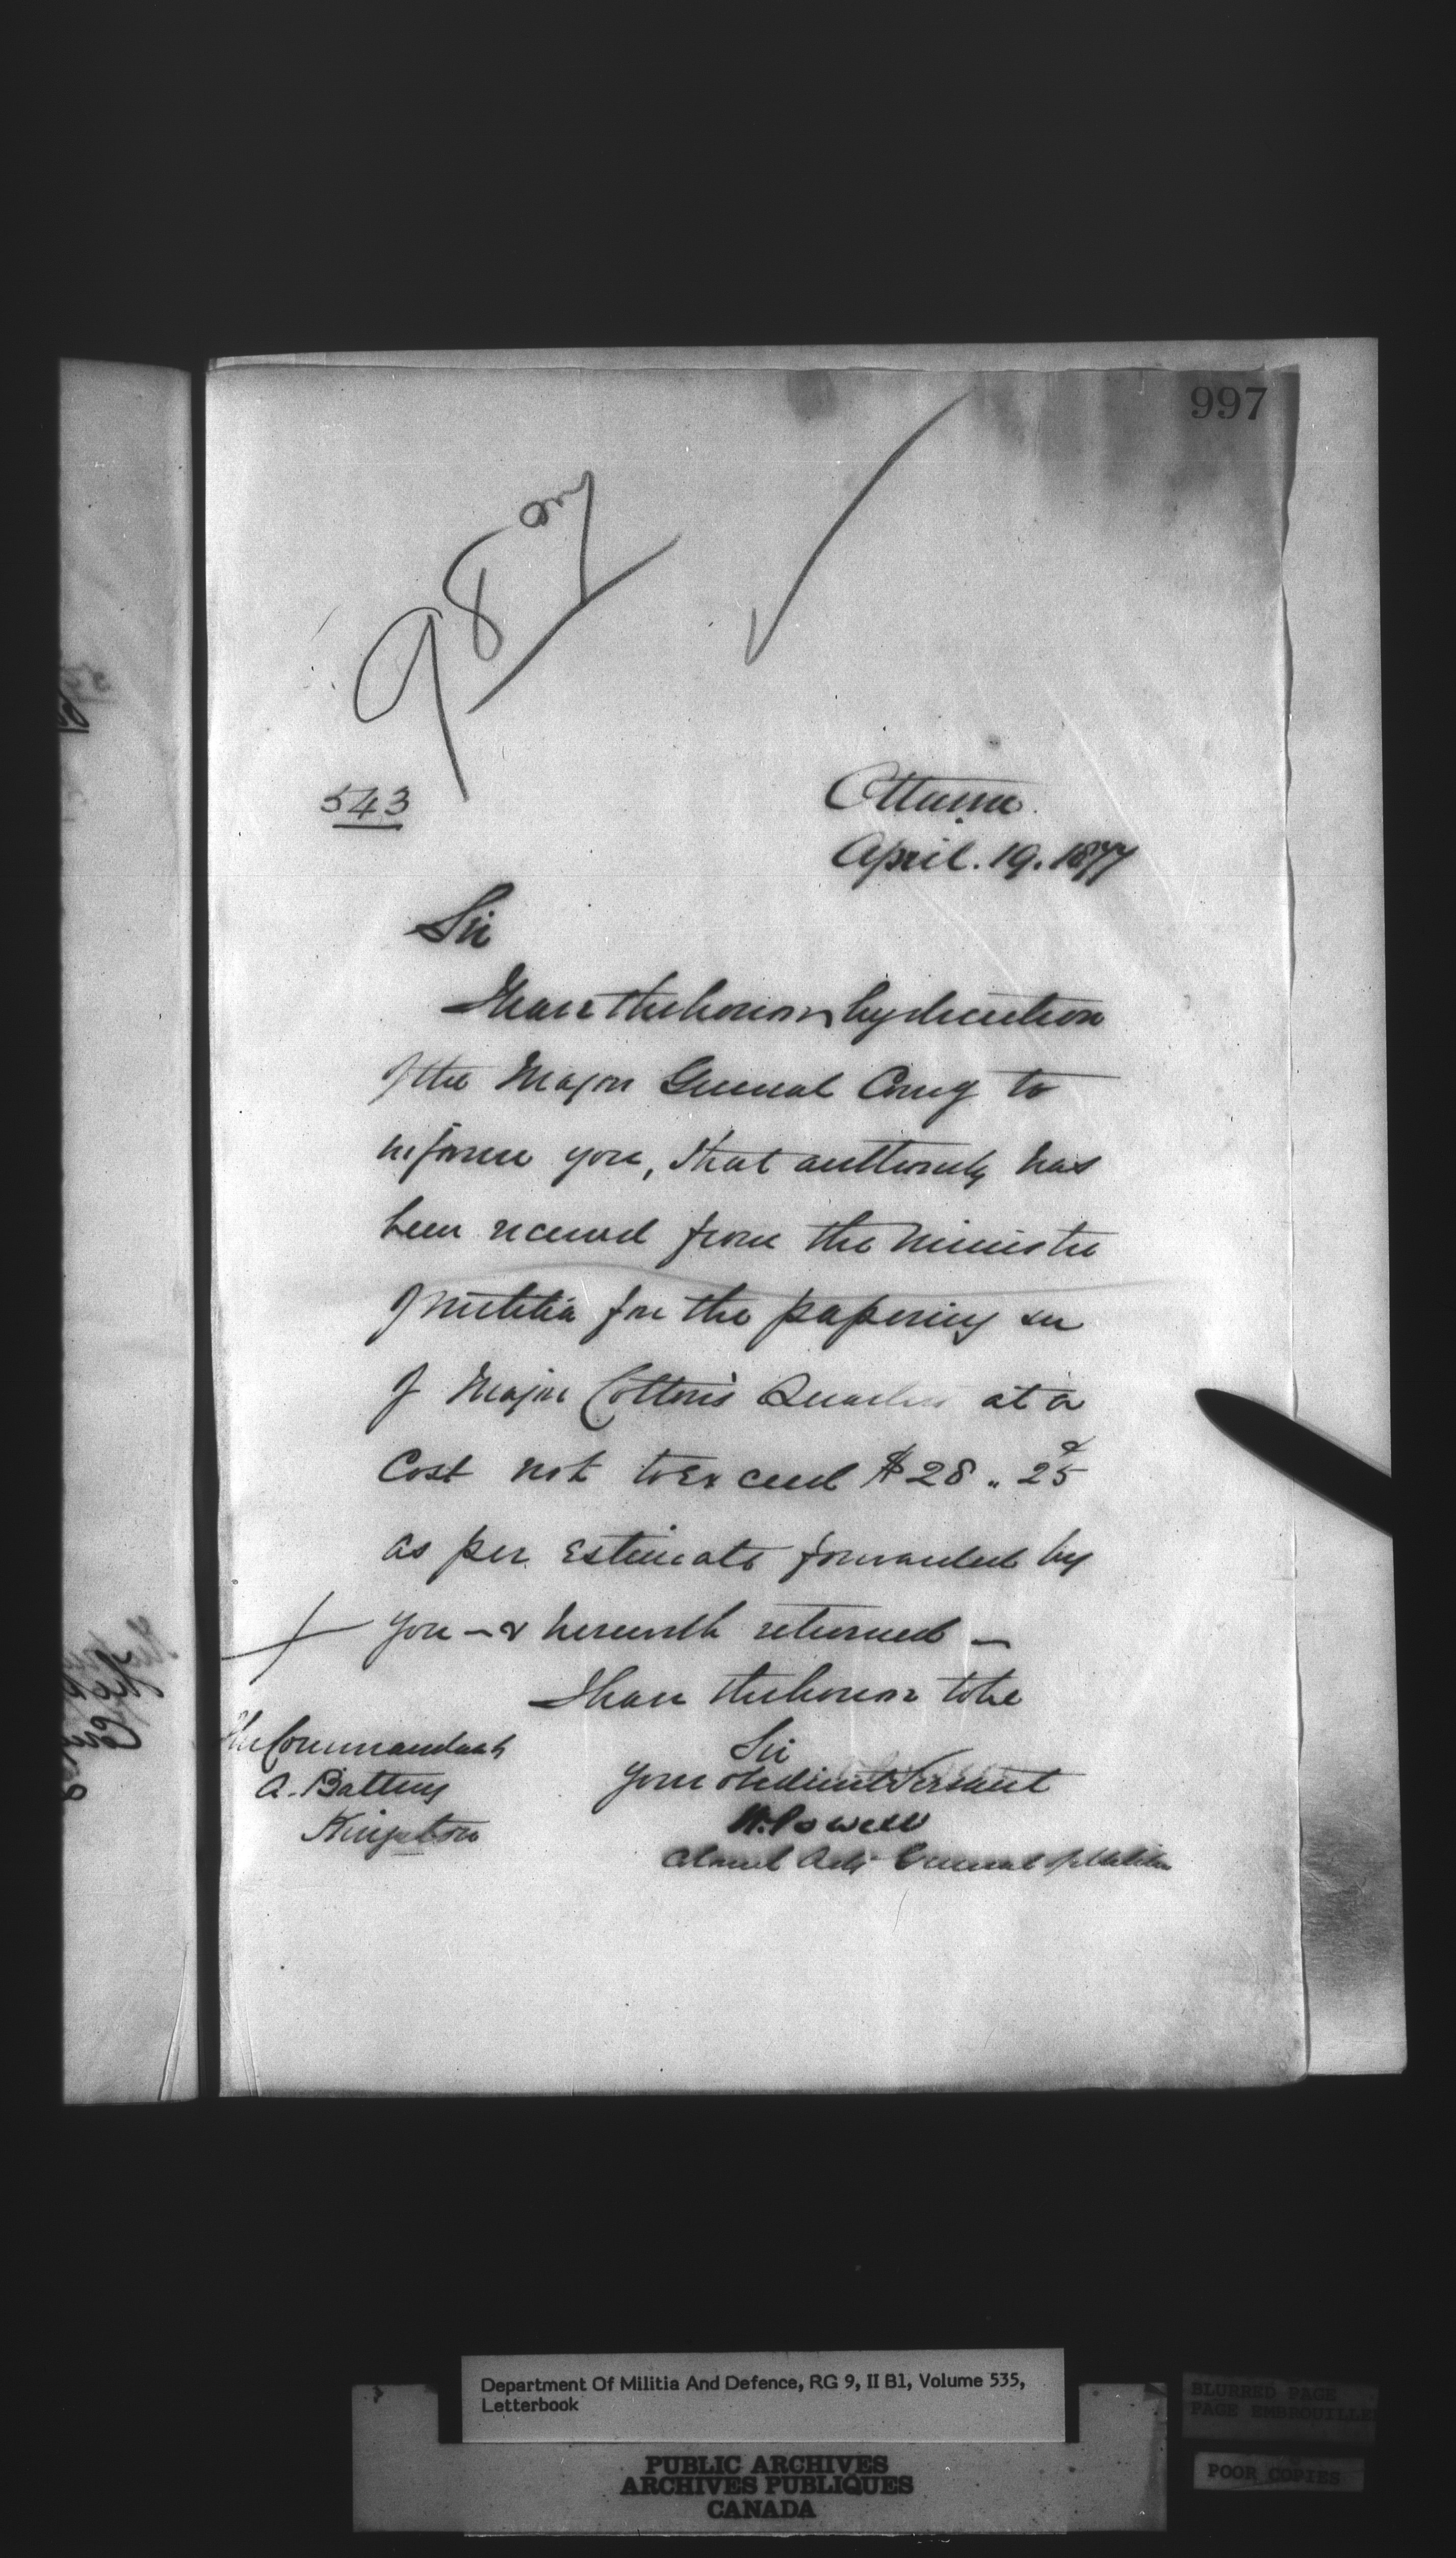 997
543
Ottawa.
April. 19. 1877
Sir
I have the honor by direction
of the Major General Comg to
inform you, that authority has
been received from the Minister
of Militia for the papering &c
of Major Cotton's Quarters at a
Cost not to Exceed $28.. 25
as per Estimate forwarded by
you — & herewith returned —
I have the honor to be
Sir
Your obedient Servant
W. Powell
Colonel Adjt General of Militia
The Commandant
A. Battery
Kingston
Department Of Militia And Defence, RG 9, II B1, Volume 535,
Letterbook
PUBLIC ARCHIVES
ARCHIVES PUBLIQUES
CANADA
BLURRED PAGE
PAGE EMBROUILLE
POOR COPIES